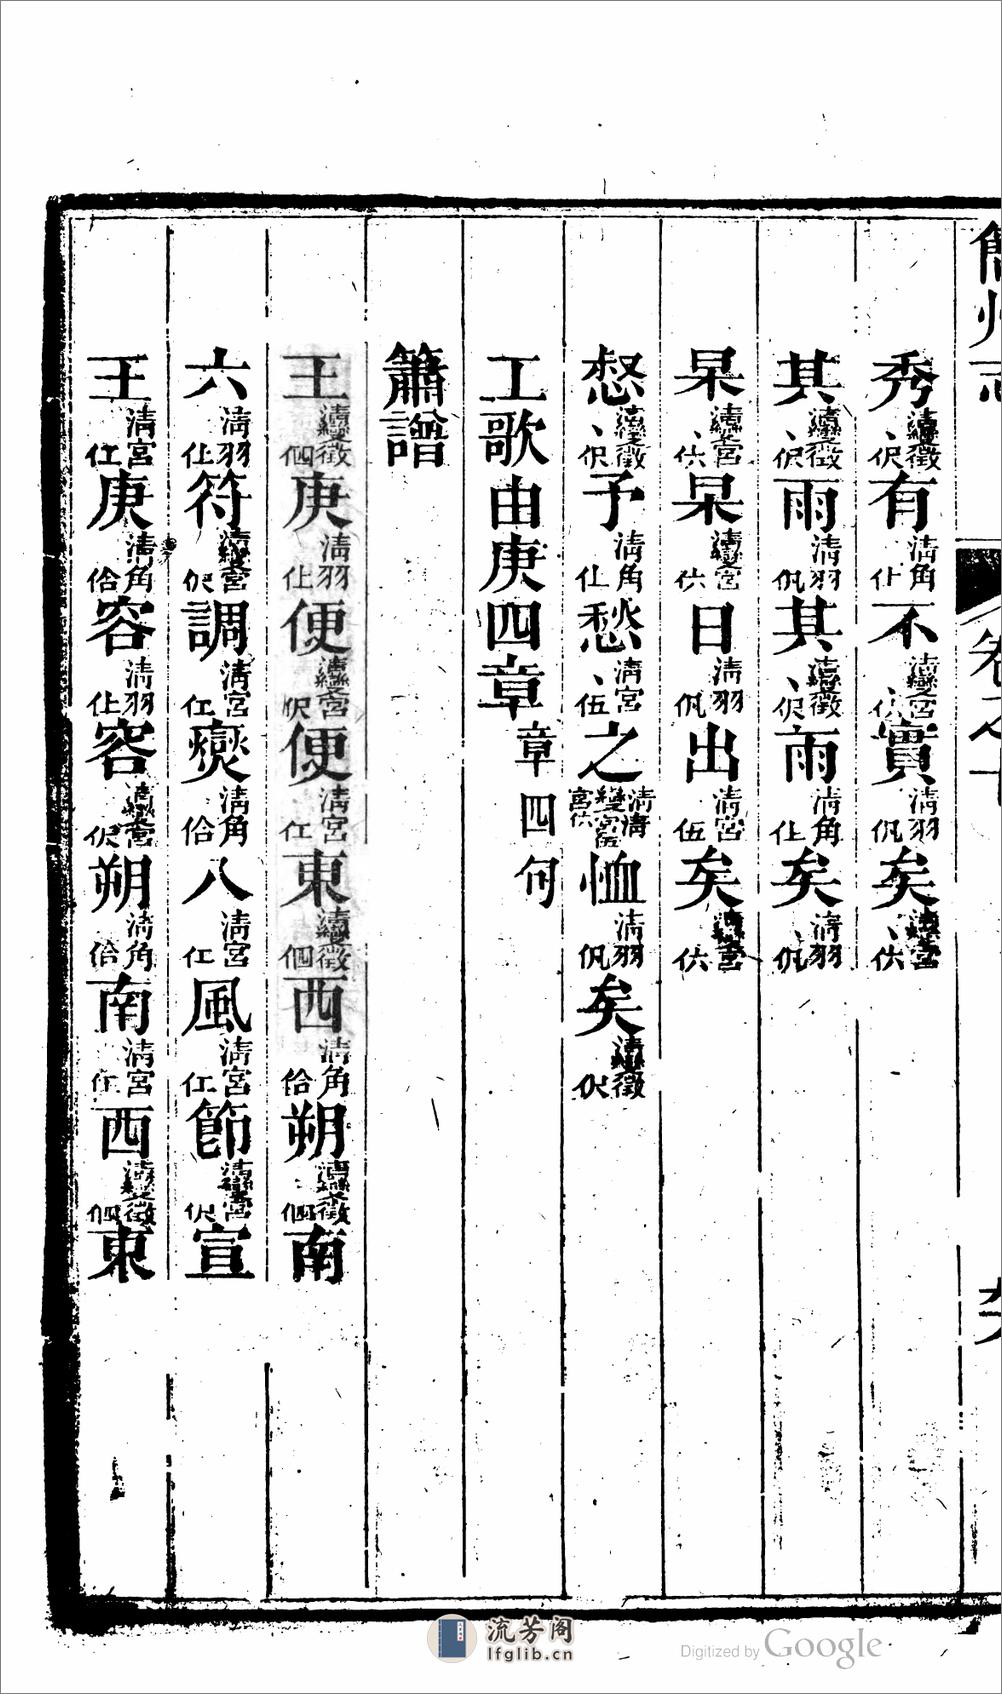 州志 卷之十
秀清變徵、伬有清角仩不清變宮、實清羽矣清變宮、
其清變徵、伬雨清羽其清變徵、伬雨清角仩矣清羽、
杲清變宮杲清變宮日清羽出清宮伍矣清變宮
惄清變徵、伬予清角仩愁清宮、伍之清清變宮宮伍恤清羽矣清變徵伬
工歌由庚四章章四句
簫譜
王清變徵伵庚清羽仩便清變宮伬便清宮仜東清變徵伵西清角佮朔清變徵伵南
六清羽仩符清變宮伬調清宮仜爕清角佮八清宮仜風清宮仜節清變宮伬宣
王清宮仜庚清角佮容清羽仩容清變宮伬朔清角佮南清宮仜西清變徵伵東
流芳阁
lfglib.cn
Digitized by Google